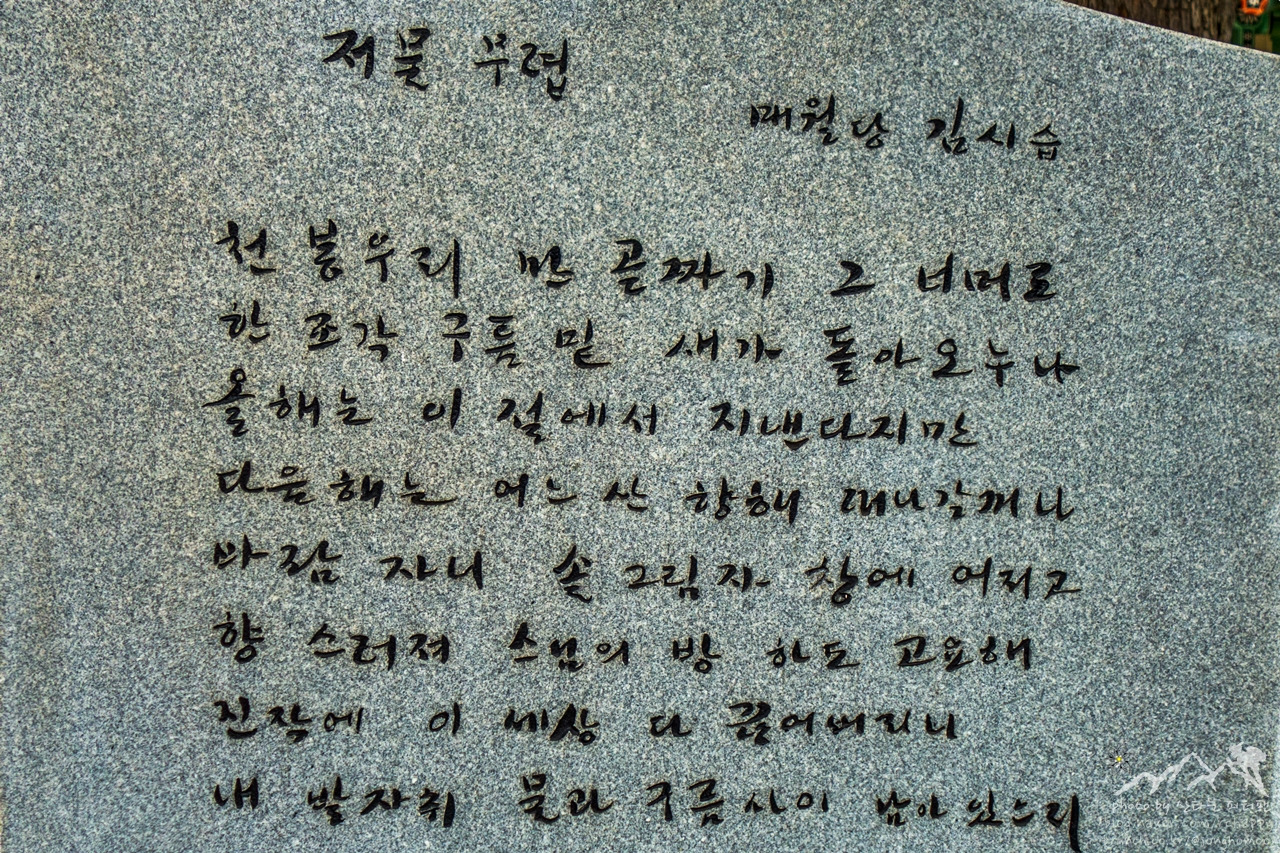 저물 무렵
매월당 김시습
천 봉우리 만 골짜기 그 너머로
한 조각 구름 밑 새가 돌아오누나
올해는 이 절에서 지낸다지만
다음해는 어느 산 향해 떠나갈꺼나
바람 자니 솔 그림자 창에 어리고
향 스러져 스님의 방 하도 고요해
진작에 이 세상 다 끊어버리니
내 발자취 물과 구름 사이 남아 있으리
photo by